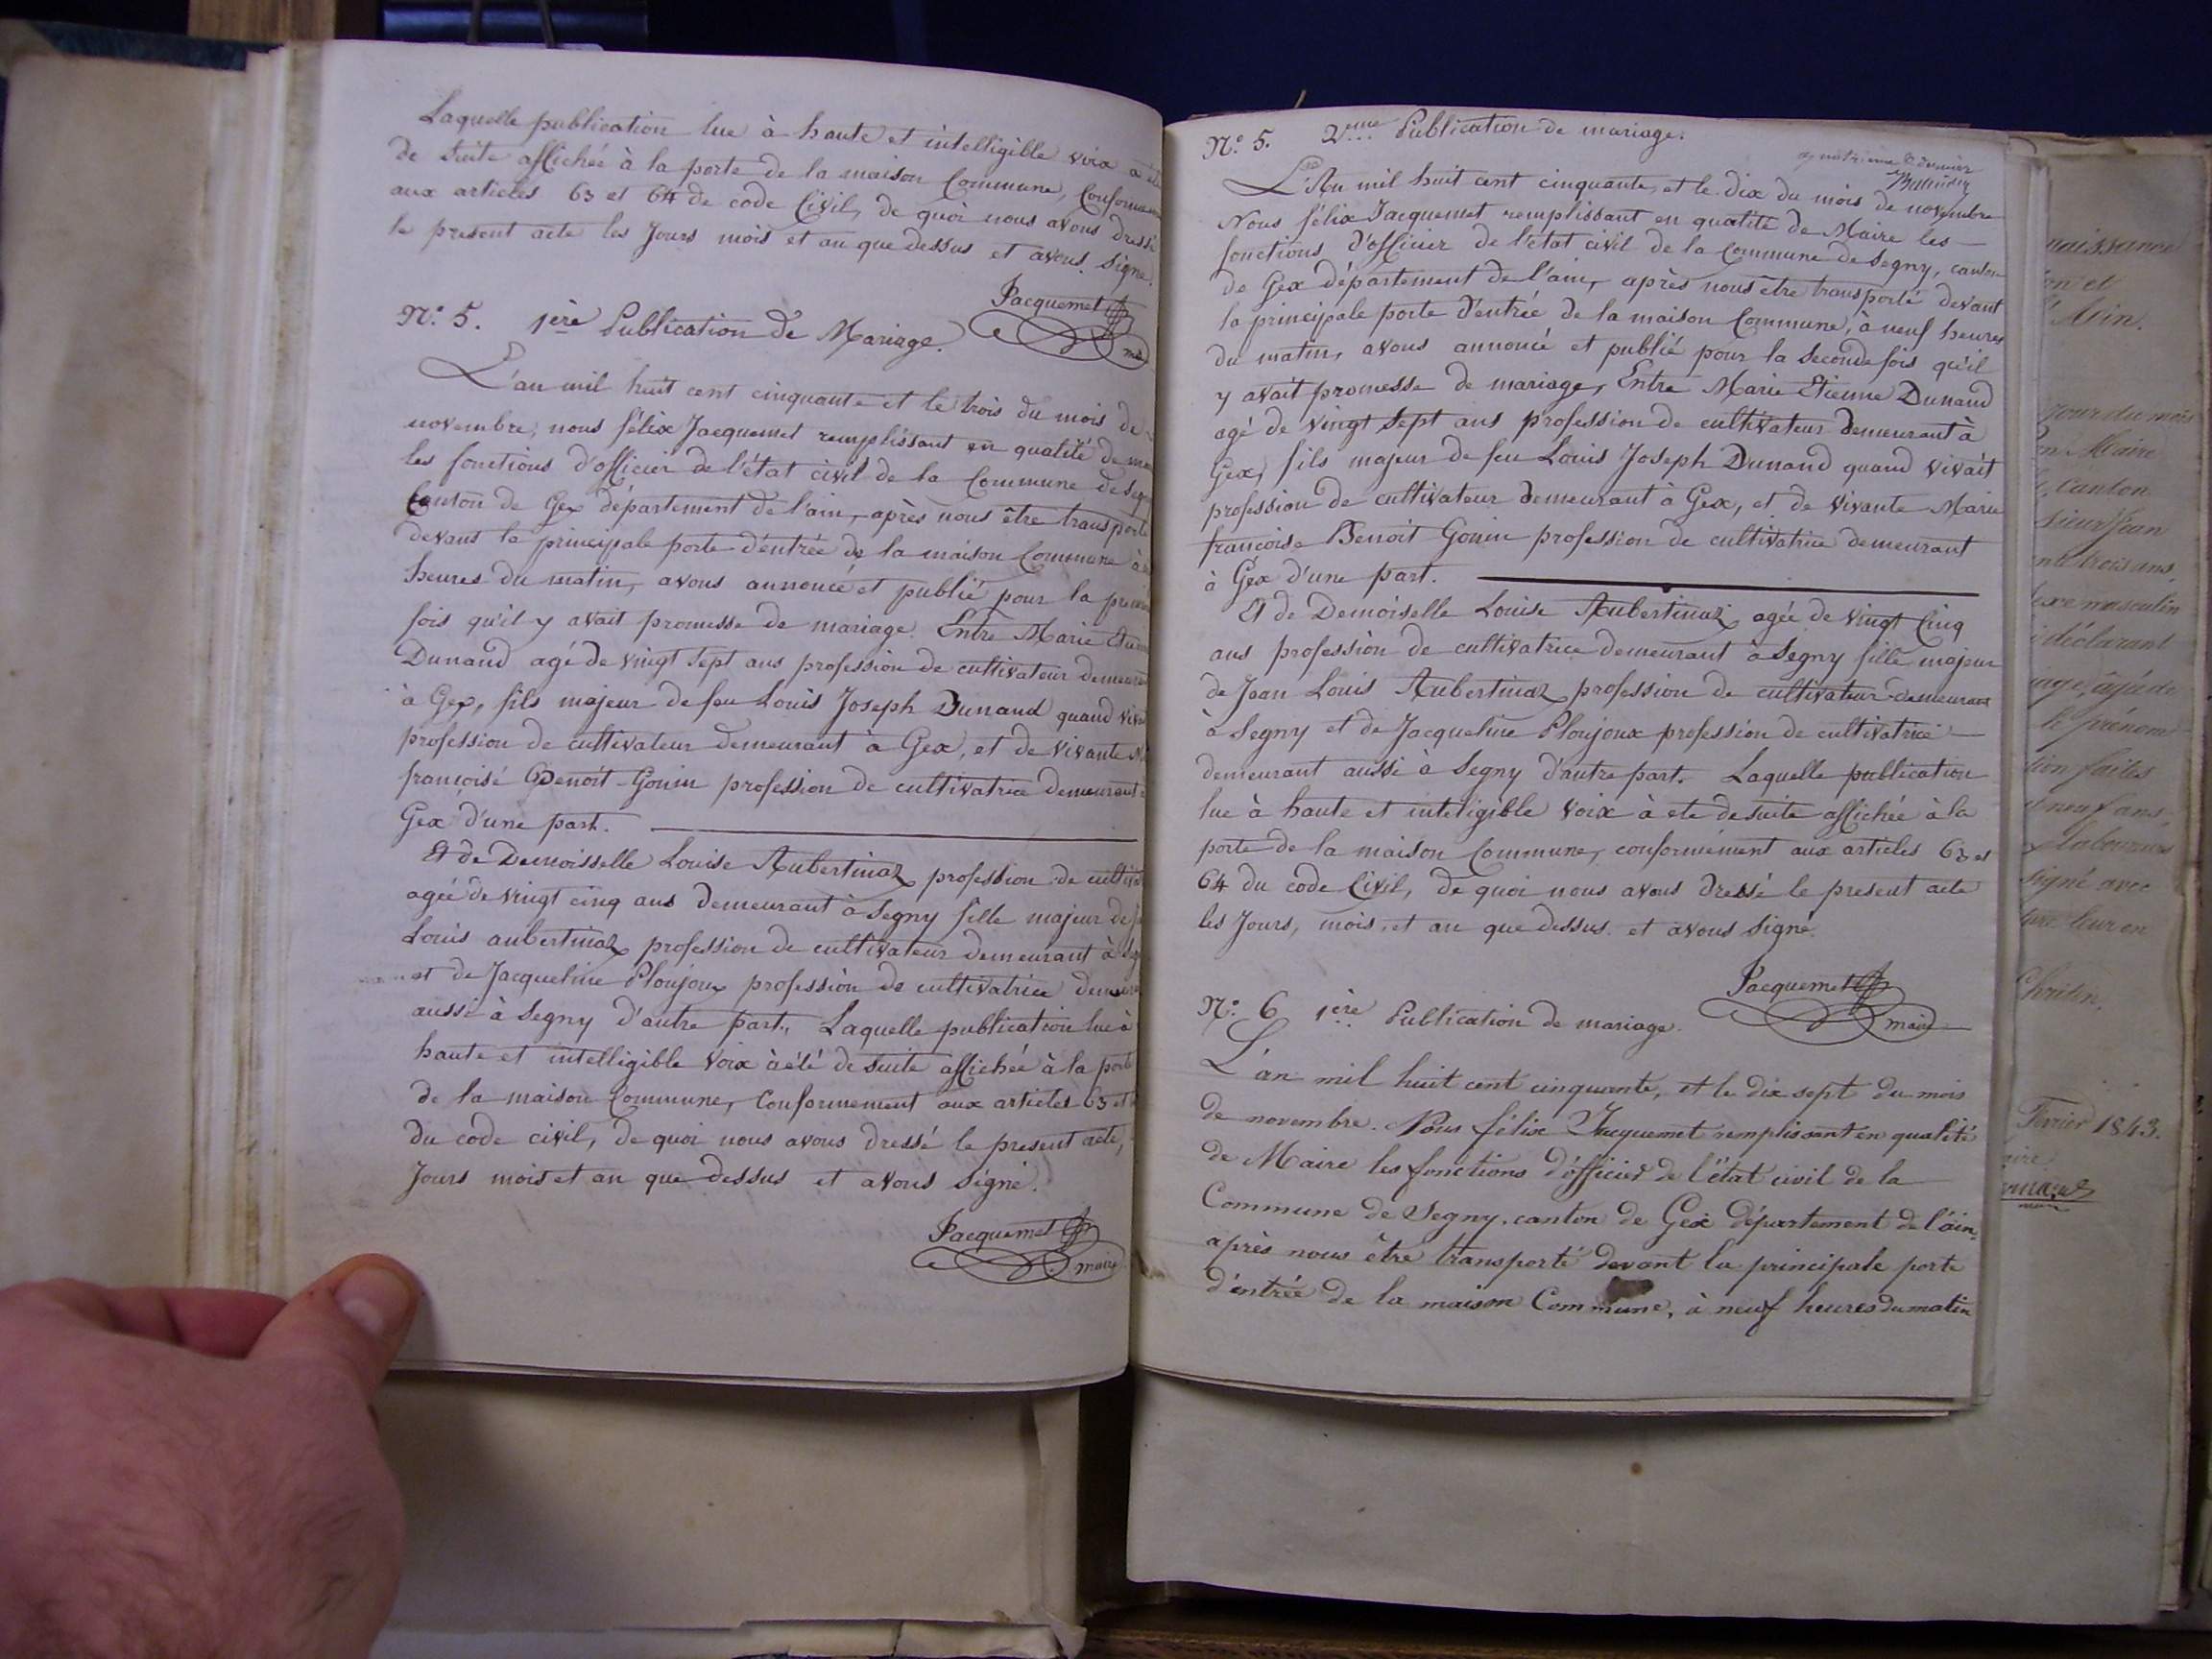 Laquelle publication lue à haute et intelligible voix a été
de suite affichée à la porte de la maison Commune, Conformement
aux articles 63 et 64 de code Civil, de quoi nous avons dressé
le present acte les Jours mois et an que dessus et avons signé.
Jacquemet
maire
N.° 5. 1ère Publication de Mariage.
L'an mil huit cent cinquante et le trois du mois de
novembre, nous félix Jacquemet remplissant en qualité de
les fonctions d'officier de l'état civil de la Commune de
Canton de Gex département de l'ain, après nous être transporté
devant la principale porte d'entrée de la maison Commune à
heures du matin, avons annoncé et publié pour la
fois qu'il y avait promesse de mariage. Entre Marie
Dunand agé de vingt sept ans profession de cultivateur
à Gex, fils majeur de feu Louis Joseph Dunand quand
profession de cultivateur demeurant à Gex, et de vivante
françoise Benoit Gonin profession de cultivatrice demeurant
Gex d'une part.
Et de Demoisselle Louise Aubertinaz profession de
agée de vingt cinq ans demeurant à Segny fille majeur de
Louis aubertinaz profession de cultivateur demeurant à
et de Jacqueline Ploujoux profession de cultivatrice
aussi à Segny d'autre part. Laquelle publication lue à
haute et intelligible voix à été de suite affichée à la porte
de la maison Commune, Conformement aux articles 63 et
du code civil, de quoi nous avons dressé le present acte,
Jours mois et an que dessus et avons signé.
Jacquemet
maire
N.° 5. 2eme Publication de mariage.
L'An mil huit cent cinquante, et le dix du mois de novembre
Nous félix Jacquemet remplissant en qualité de Maire les
fonctions d'officier de l'état civil de la Commune de Segny, canton
de Gex département de l'ain, après nous être transporté devant
la principale porte d'entrée de la maison Commune, à neuf heures
du matin, avons annoncé et publié pour la seconde fois qu'il
y avait promesse de mariage, Entre Marie Etienne Dunand
agé de vingt sept ans profession de cultivateur demeurant à
Gex, fils majeur de feu Louis Joseph Dunand quand vivait
profession de cultivateur demeurant à Gex, et de vivante Marie
françoise Benoit Gonin profession de cultivatrice demeurant
à Gex d'une part.
Et de Demoiselle Louise Aubertinaz agée de vingt Cinq
ans profession de cultivatrice demeurant à Segny fille majeur
de Jean Louis Aubertinaz profession de cultivateur demeurant
à Segny et de Jacqueline Ploujoux profession de cultivatrice
demeurant aussi à Segny d'autre part. Laquelle publication
lue à haute et inteligible voix à ete de suite affichée à la
porte de la maison Commune, conformément aux articles 63 et
64 du code Civil, de quoi nous avons dressé le present acte
les Jours, mois, et an que dessus. et avons signé.
Jacquemet
maire
N.° 6 1ère Publication de mariage.
L'an mil huit cent cinquante, et le dix sept du mois
de novembre. Nous félix Jacquemet remplissant en qualité
de Maire les fonctions d'officier de l'état civil de la
Commune de Segny, canton de Gex département de l'ain,
après nous être transporté devant la principale porte
d'entrée de la maison Commune, à neuf heures du matin
naissance
on et
Ain.
Jour du mois
Maire
canton
sieur Jean
trois ans,
masculin
déclarant
le prénom
faites
neuf ans,
signé avec
Février 1843.